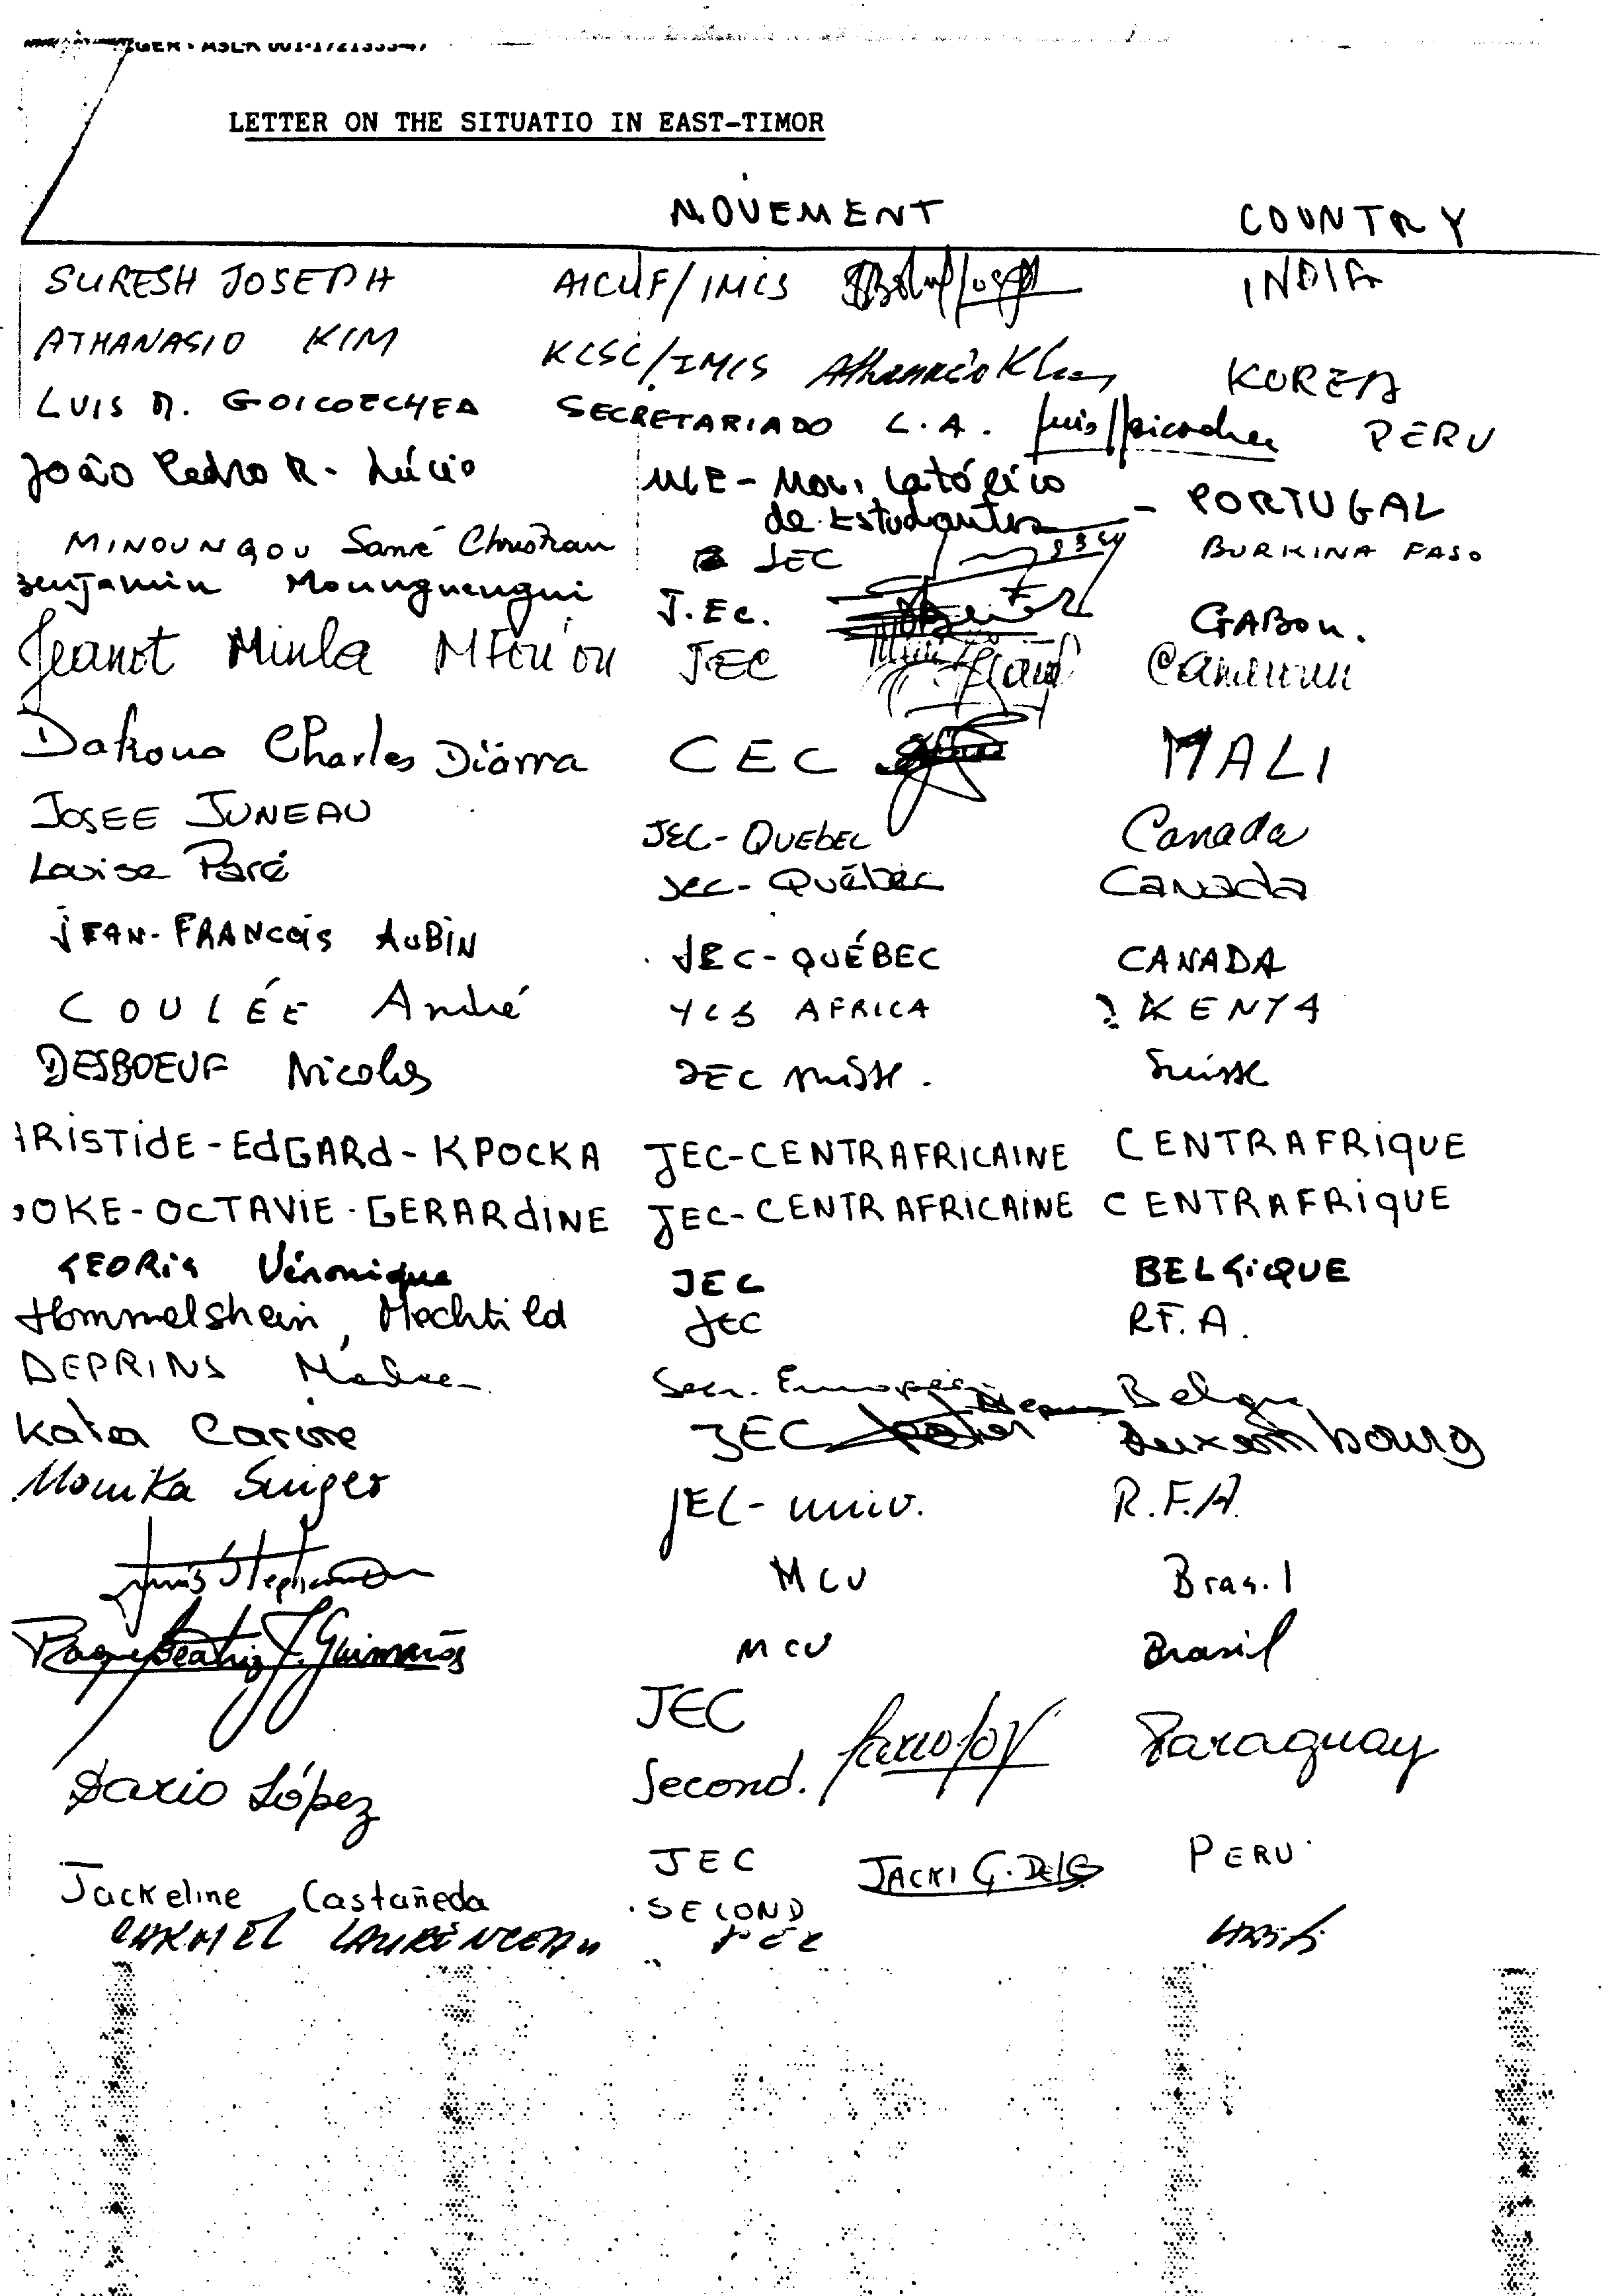 LETTER ON THE SITUATIO IN EAST-TIMOR
MOVEMENT COUNTRY
SURESH JOSEPH AICUF/IMCS INDIA
ATHANASIO KIM KCSC/IMCS Athanasio Kim KOREA
LUIS M. GOICOECHEA SECRETARIADO L.A. PERU
João Pedro R. Lúcio MCE - Mov. Católico
de Estudantes - PORTUGAL
MINOUNGOU Sanné Christian JEC BURKINA FASO
Benjamin Mounguengui J.Ec. GABON.
Jeanot Minla Mfou'ou JEC Cameroun
Dakoua Charles Diarra CEC MALI
JOSEE JUNEAU JEC-QUEBEC Canada
Louise Paré JEC-Québec Canada
JEAN-FRANCOIS AUBIN JEC-QUÉBEC CANADA
COULÉE André YCS AFRICA KENYA
DESBOEUF Nicolas JEC suisse. Suisse
ARISTIDE-EDGARD-KPOCKA JEC-CENTRAFRICAINE CENTRAFRIQUE
OKE-OCTAVIE-GERARDINE JEC-CENTRAFRICAINE CENTRAFRIQUE
GEORIS Véronique JEC BELGIQUE
Hommelsheim, Mechtild JEC R.F.A.
DEPRINS Secr. Européen Belgique
Kaiser Carine JEC Luxembourg
Monika JEC-univ. R.F.A.
MCU Brasil
Raquel Beatriz J. Guimarães MCU Brasil
JEC
Dario López Second. Paraguay
JEC JACKI G. PERU
Jackeline Castañeda SECOND
CARMEL LAURENCEAU JEC HAITI